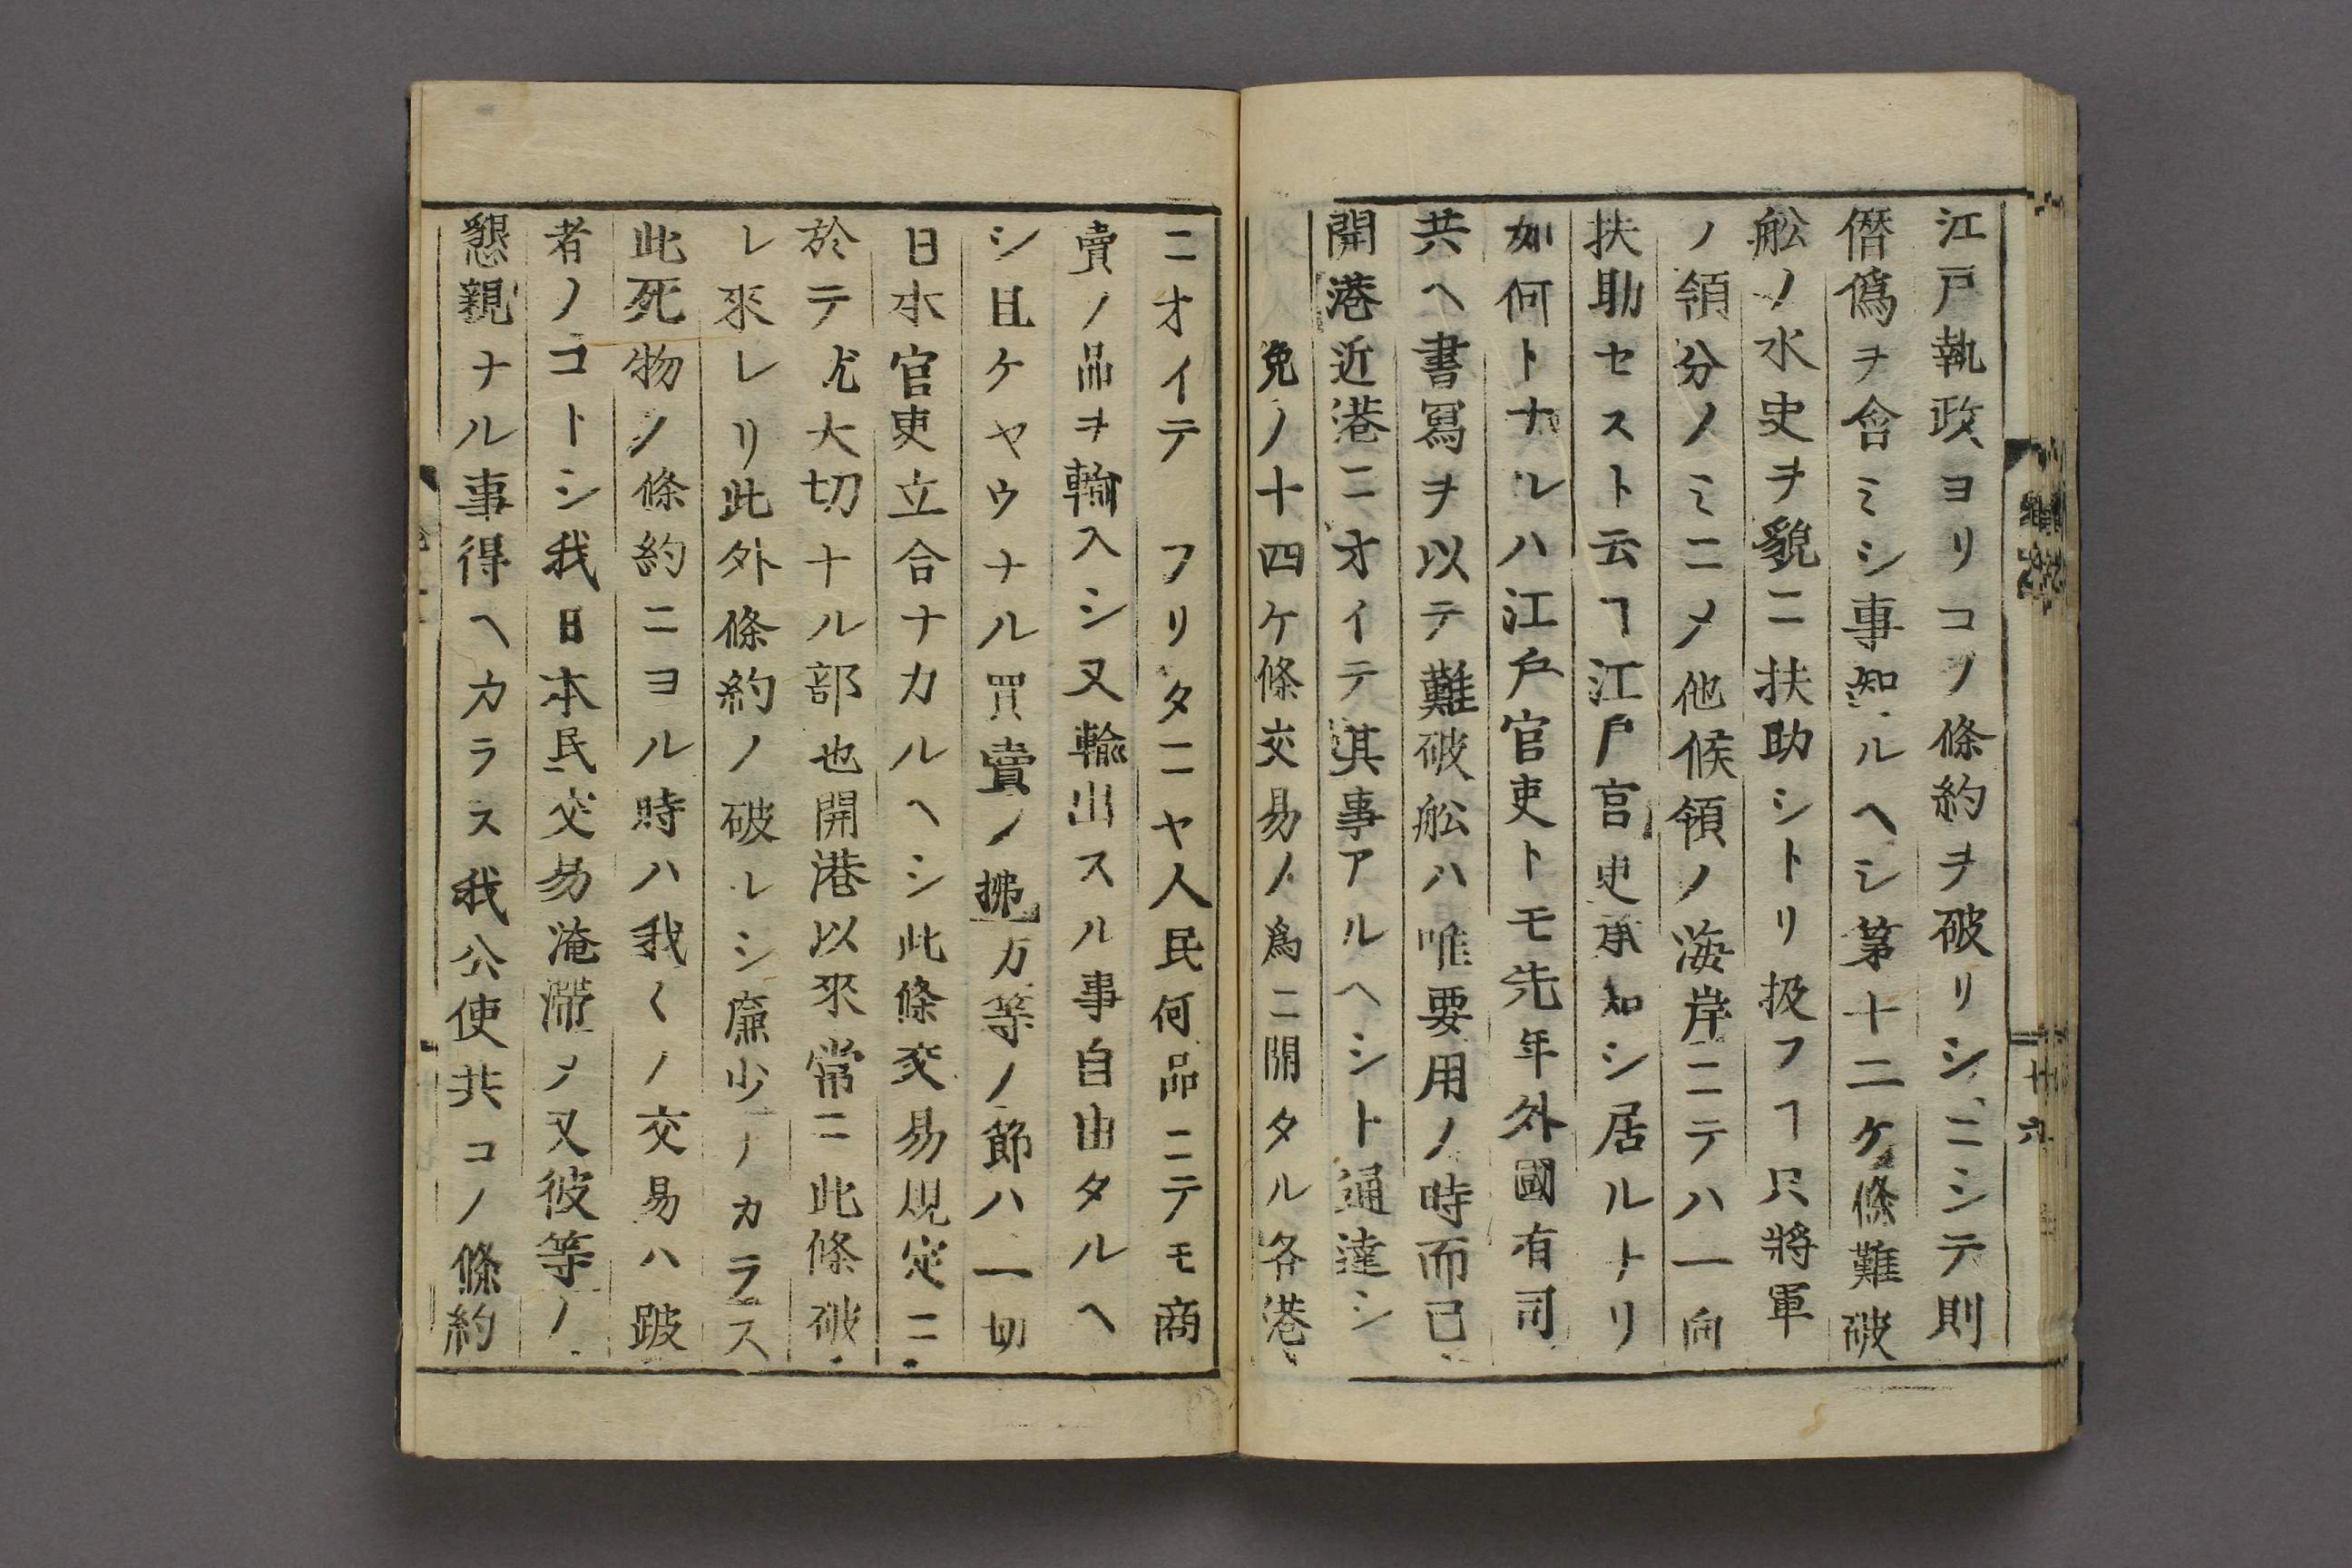 江戸執政ヨリコノ條約ヲ破リシニシテ則
僭僞ヲ含ミシ事知ルヘシ第十二ケ條難破
舩ノ水史ヲ貌ニ扶助シトリ扱フヿ只將軍
ノ領分ノミニメ他候領ノ海岸ニテハ一向
扶助セスト云ヿ江戸官吏承知シ居ルトリ
如何トナルハ江戸官吏トモ先年外國有司
共ヘ書冩ヲ以テ難破舩ハ唯要用ノ時而已
開港近港ニオイテ其事アルヘシト通達シ
免ノ十四ケ條交易ノ爲ニ開タル各港
ニオイテ フリタニヤ人民何品ニテモ商
賣ノ品ヲ輸入シ又輸出スル事自由タルヘ
シ且ケヤウナル買賣ノ拂方等ノ節ハ一切
日本官吏立合ナカルヘシ此條交易規定ニ
於テ尤大切ナル部也開港以來常ニ此條破
レ來レリ此外條約ノ破レシ廉少ノカラス
此死物ノ條約ニヨル時ハ我くノ交易ハ跛
者ノコトシ我日本民交易淹滯ノ又彼等ノ
懇親ナル事得ヘカラス我公使共コノ條約